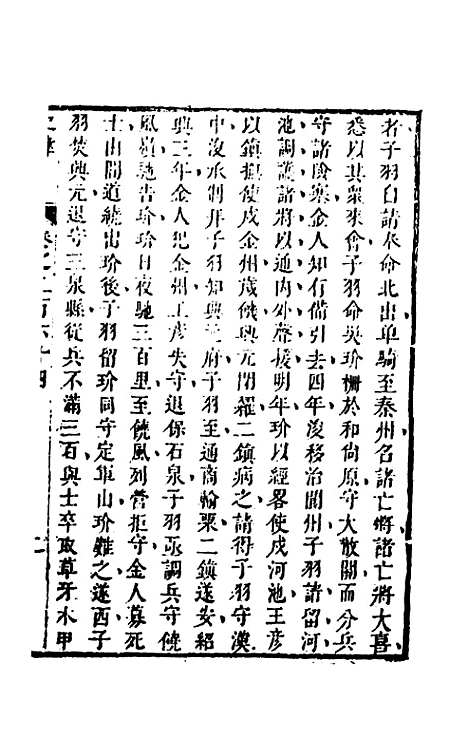 者子羽自請奉命北出單騎至秦州召諸亡將諸亡將大喜
悉以其衆來會子羽命吳玠柵於和尚原守大散關而分兵
守諸險塞金人知有備引去四年浚移治閬州子羽請留河
池調護諸將以通内外聲援明年玠以經畧使戍河池王彦
以鎮撫使戍金州歲饑興元閉糴二鎮病之請得子羽守漢
中浚承制并子羽知興元府子羽至通商輸粟二鎮遂安紹
興三年金人犯金州王彦失守退保石泉子羽亟調兵守饒
風嶺馳告玠玠日夜馳三百里至饒風列營拒守金人募死
士由間道繞出玠後子羽留玠同守定軍山玠難之遂西子
羽焚興元退守三泉縣從兵不滿三百與士卒取草牙木甲
卷之二百六十四